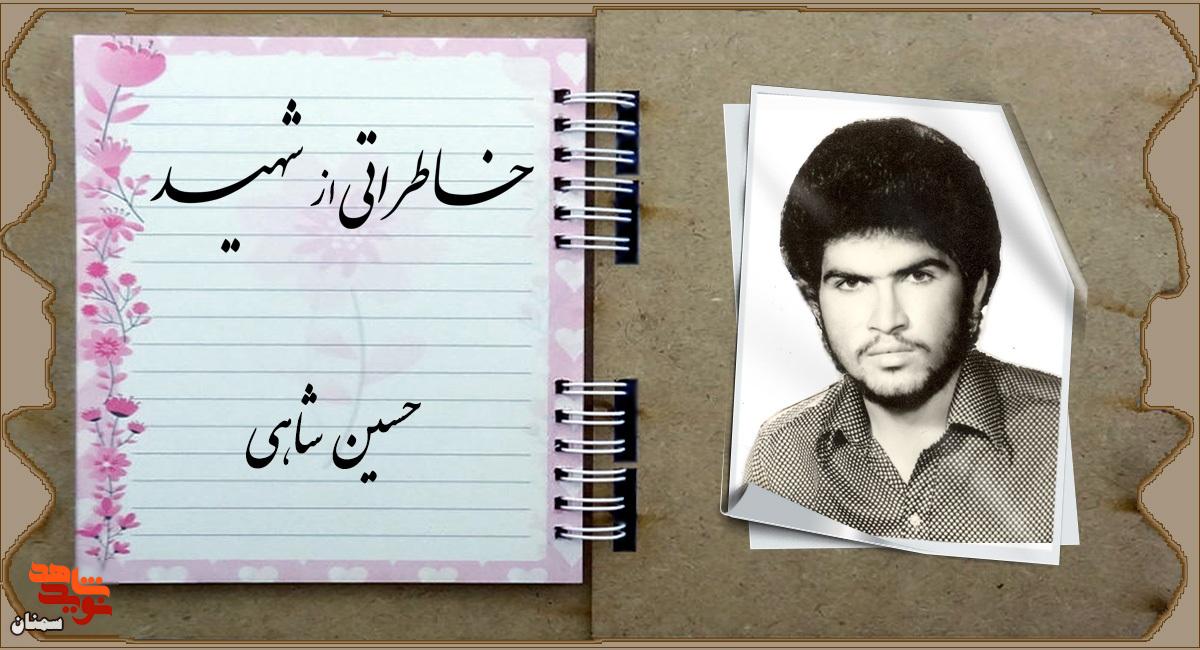 خاطراتی از شهید
حسین شاهی
نوید شاهد
سمنان